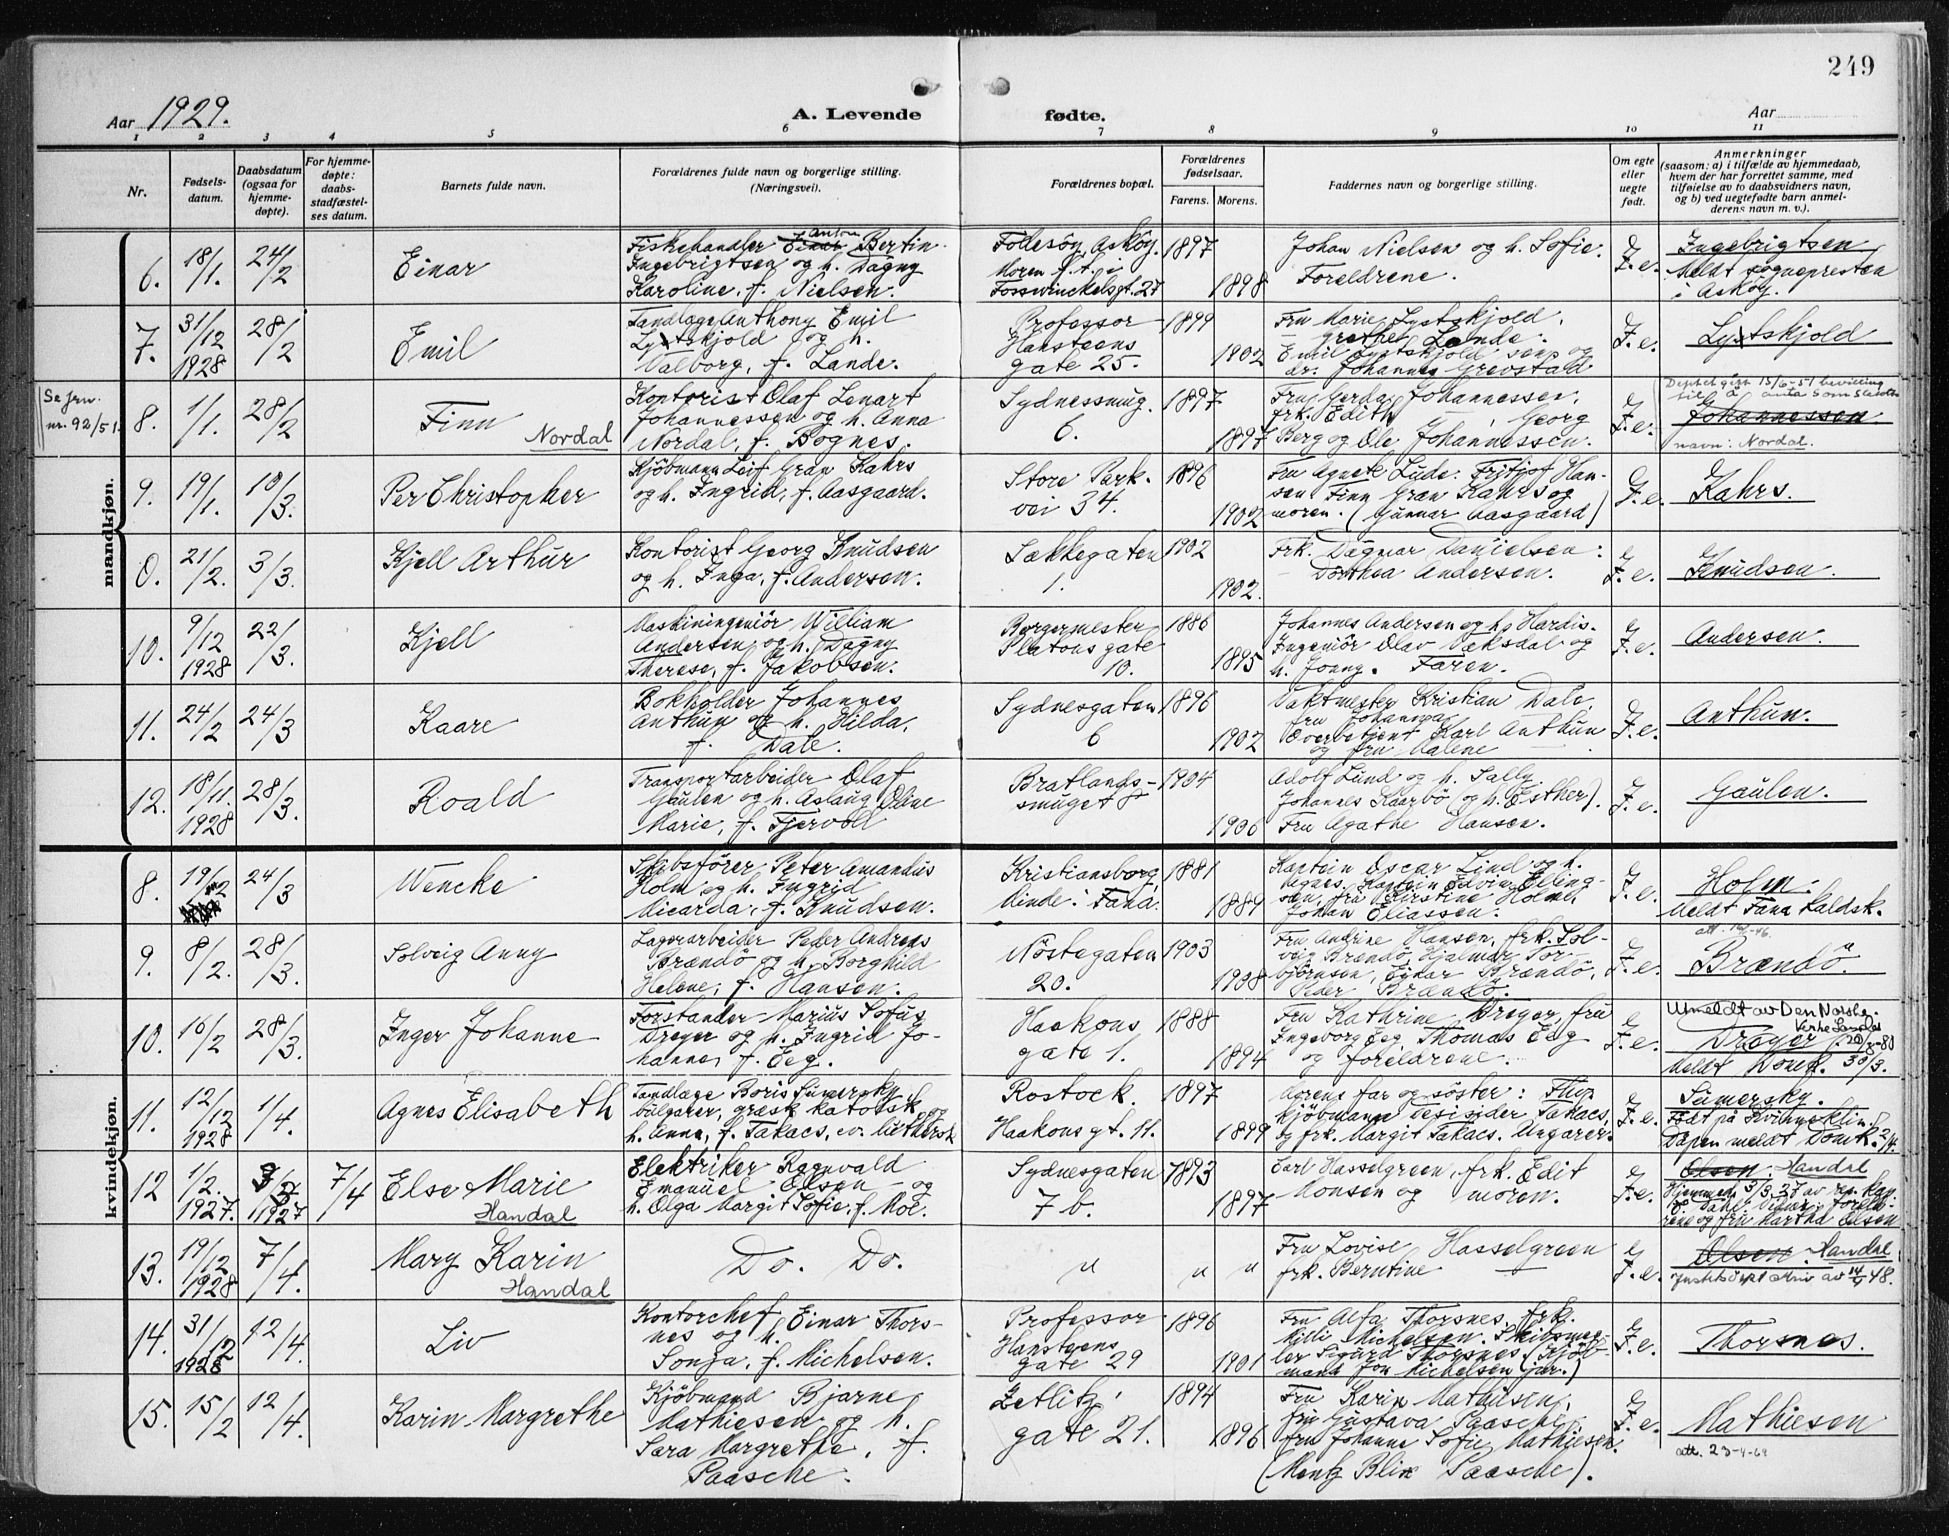 249
Aar 1929.
A. Levende fødte.
Aar
1 2 3 4 5 6 7 8 9 10 11
Nr.
Fødsels-
datum.
Daabsdatum
(ogsaa for
hjemme-
døpte).
For hjemme-
døpte:
daabs-
stadfæstel-
ses datum.
Barnets fulde navn.
Forældrenes fulde navn og borgerlige stilling.
(Næringsvei).
Forældrenes bopæl.
Forældrenes
fødselsaar.
Farens. Morens.
Faddernes navn og borgerlige stilling.
Om egte
eller
uegte
født.
Anmerkninger
(saasom: a) i tilfælde av hjemmedaab,
hvem der har forrettet samme, med
tilføielse av to daabsvidners navn,
og b) ved uegtefødte barn anmel-
derens navn m. v.).
mandkjøn.
6. 18/1. 24/2 Einar
Fiskehandler Anton Bertin
Ingebrigtsen og h. Dagny
Karoline, f. Nielsen.
Askøy.
Moren f. t. i
Fosswinckelsgt. 27
1897 1898
Johan Nielsen og h. Sofie.
Foreldrene.
F. e.
Ingebrigtsen
Meldt sognepresten
i Askøy.
7. 31/12 1928 28/2 Emil
Tandlæge Anthony Emil
Lystskjold og h.
Valborg, f. Lande.
Professor
Hansteens
gate 25.
1899 1902
Fru Marie Lystskjold,
Grethe Lande.
Emil Lystskjold senr og
dr. Johannes Grevstad
F. e.
Lystskjold
Se jrn.
nr. 92/51.
8. 1/1. 28/2 Finn
Nordal
Kontorist Olaf Lenart
Johannessen og h. Anna
Nordal, f. Bognes.
Sydnessmug.
6.
1897 1897
Fru Gerda Johannessen,
frk. Edith — Georg
Berg og Ole Johannessen.
F. e.
Deptet gitt 15/6-51 bevilling
til å anta som slekts-
Johannessen
navn: Nordal.
9. 19/1. 10/3. Per Christopher
Kjøbmann Leif Gran Kahrs
og h. Ingrid, f. Aasgaard.
Store Park-
vei 34.
1896 1902
Fru Agnete Lude. Fritjof Han-
sen Finn Gran Kahrs og
moren. (Gunnar Aasgaard)
F. e.
Kahrs.
0. 21/2. 3/3. Kjell Arthur
Kontorist Georg Knudsen
og h. Inga, f. Andersen.
Sækkegaten
1.
1902 1902.
Frk. Dagmar Danielsen:
— Dorthea Andersen.
F. e.
Knudsen.
10. 9/12 1928 22/3. Kjell
Maskiningeniör William
Andersen, og h. Dagny
Therese, f. Jakobsen.
Borgermester
Platousgate
10.
1886 1895
Johannes Andersen og h. Hardis.
Ingeniör Olav Vaksdal og
h. Jonny. Faren.
F. e.
Andersen.
11. 24/2 24/3 Kaare
Bokholder Johannes
Anthun og h. Hilda,
f. Dale.
Sydnesgaten
6
1896 1902
Vaktmester Kristian Dale,
fru Johanna
Overbetjent Karl Anthun
og fru Malene —
F. e.
Anthun.
12. 18/11. 1928 28/3. Roald
Transportarbeider Olaf
Gaulen og h. Aslaug Oline
Marie, f. Fjervold
Bratlands-
smuget 8
1904 1906
Adolf Lund og h. Sally.
Johannes Kaarbö (og h. Esther).
Fru Agathe Hansen.
F. e.
Gaulen.
kvindekjøn.
8. 19/2 24/3 Wencke
Skibsförer Peter Amandus
Holm og h. Ingrid
Ricarda, f. Knudsen.
Kristiansborg,
Minde i Fana.
1881 1889
Kaptein Oscar Lind og h.
Agnes, Kaptein Edvin Elling-
sen, fru Kirstine Holm,
Johan Eliassen.
F. e.
Holm.
Meldt Fana Kaldsk.
9. 8/2. 28/3. Solveig Anny
Lagerarbeider Peder Andreas
Brændö og h. Borghild
Helene, f. Hansen.
Nöstegaten
20.
1903 1908
Fru Andrine Hansen, frk. Sol-
veig Brændö, Hjalmar Tor-
björnsen, Einar Brændö,
Peder Brændö.
F. e.
Brændö
10. 16/2 28/3. Inger Johanne
Forstander Marius Sofus
Dreyer og h. Ingrid Jo-
hanne, f. Eeg.
Haakons
gate 1.
1888 1894
Fru Kathrine Dreyer, fru
Ingeborg Eeg, Thomas Eeg
og foreldrene.
F. e.
Utmeldt av Den Norske
Kirke
Dreyer
Meldt Domk. 30/3.
11. 12/12 1928 1/4. Agnes Elisabeth
Tandlæge Boris Sumersky
bulgarer, græsk katolsk, og
h. Anna, f. Takacs, ev. luthersk
Rostock.
Haakonsgt. 11.
1897 1899
Morens far og söster:
kjöbmann Desider Takacs,
og frk. Margit Takacs. Ungarer.
F. e.
Sumersky.
Födt på Kvinneklin.
Dåpen meldt Domk. 2/4.
12 1/2. 1927. 3/3 1927 7/4 Else Marie
Handal
Elektriker Ragnvald
Emanuel Olsen og
h. Olga Margit Sofie, f. Moe.
Sydnesgaten
7 b.
1893 1897
Carl Hasselgreen, frk. Edit
Monsen og moren.
F. e.
Olsen Handal
Hjemmed. 3/3. 27 av res. kap.
O. Dahl. Vidner: foreld-
rene og fru Martha Olsen
13. 19/12 1928 7/4. Mary Karin
Handal
Do. Do.
" " "
Fru Lovise Hasselgreen
frk. Berntine —
F. e.
Olsen. Handal
14. 31/12 1928 12/4. Liv
Kontorchef Einar Thors-
nes og h.
Sonja, f. Michelsen.
Professor
Hansteens
gate 29
1896 1901
Fru Alfa Thorsnes, frk.
Milli Michelsen. Skibsmeg-
ler Sigurd Thorsnes (Kjöb-
mann Jon Michelsen jur.)
F. e.
Thorsnes.
15. 15/2 12/4. Karin Margrethe
Kjöbmand Bjarne
Mathiesen og h.
Sara Margrethe, f.
Paasche.
Zetlitz'
gate 21.
1894 1896
Fru Karin Mathiesen,
fru Gustava Paasche,
fru Johanne Sofie Mathiesen.
(Mentz Blix Paasche).
F. e.
Mathiesen
att. 23-4-69